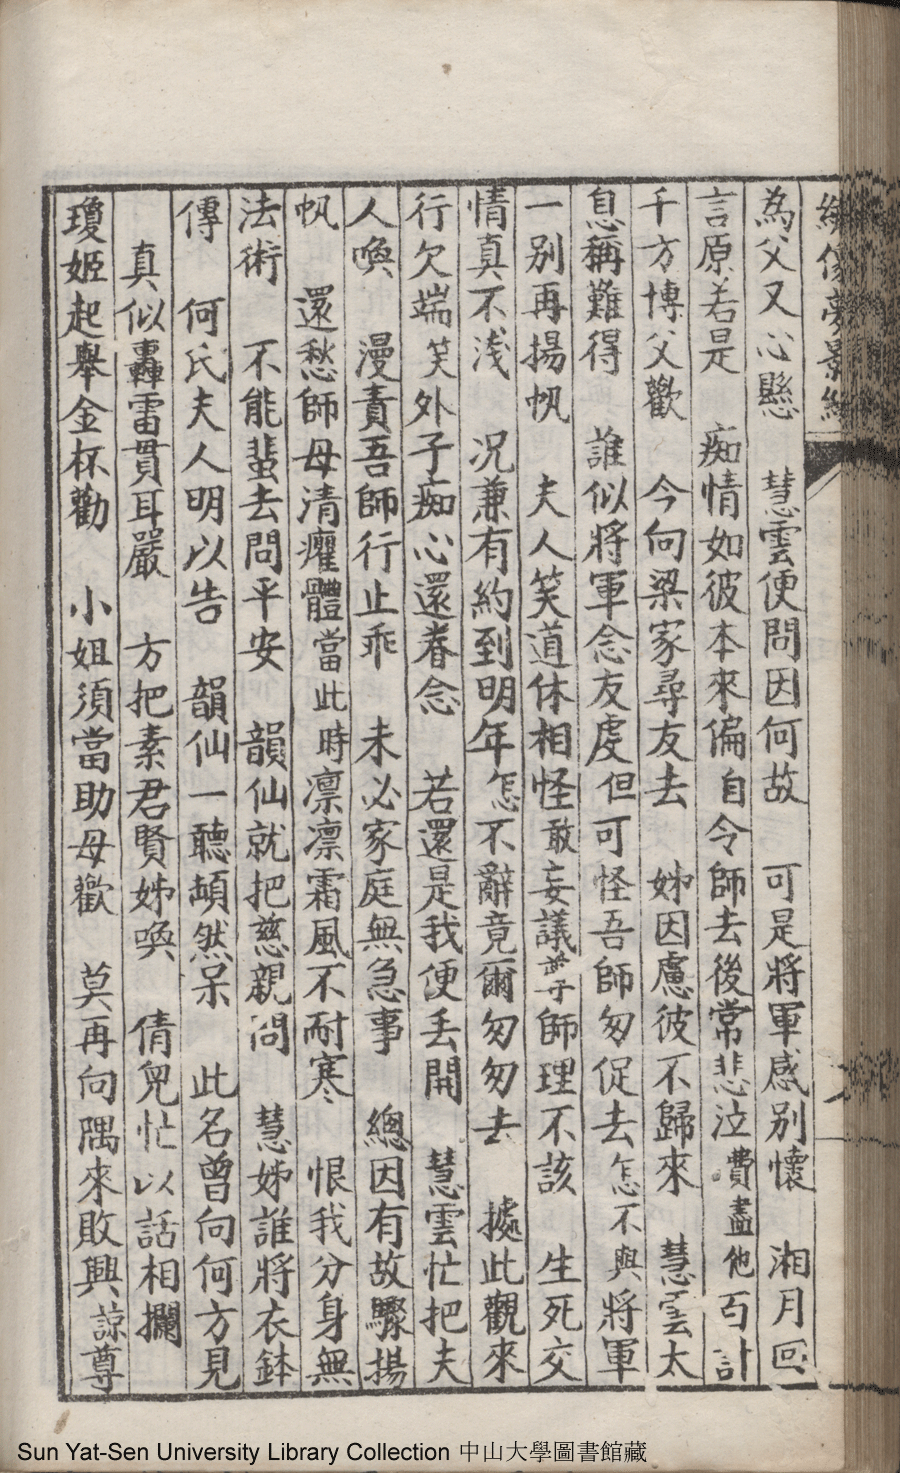 繡像夢影緣
為父又心懸　慧雲便問因何故　可是將軍感別懷　湘月回
言原若是　痴情如彼本來偏自令師去後常悲泣費盡他百計
千方博父歡　今向梁家尋友去　姊因慮彼不歸來　慧雲太
息稱難得　誰似將軍念友虔但可怪吾師匆促去怎不與將軍
一別再揚帆　夫人笑道休相怪敢妄議尊師理不該　生死交
情真不淺　况兼有約到明年怎不辭竟爾匆匆去　據此觀來
行欠端笑外子痴心還眷念　若還是我便丢開　慧雲忙把夫
人喚　漫責吾師行止乖　未必家庭無急事　總因有故驟揚
帆　還愁師母清癯體當此時凛凛霜風不耐寒　恨我分身無
法術　不能蜚去問平安　韻仙就把慈親問　慧姊誰將衣鉢
傳　何氏夫人明以告　韻仙一聽頓然呆　此名曾向何方見
真似轟雷貫耳嚴　方把素君賢姊喚　倩兒忙以話相攔
瓊姬起舉金杯勸　小姐須當助母歡　莫再向隅來敗興諒尊
Sun Yat-Sen University Library Collection 中山大學圖書館藏